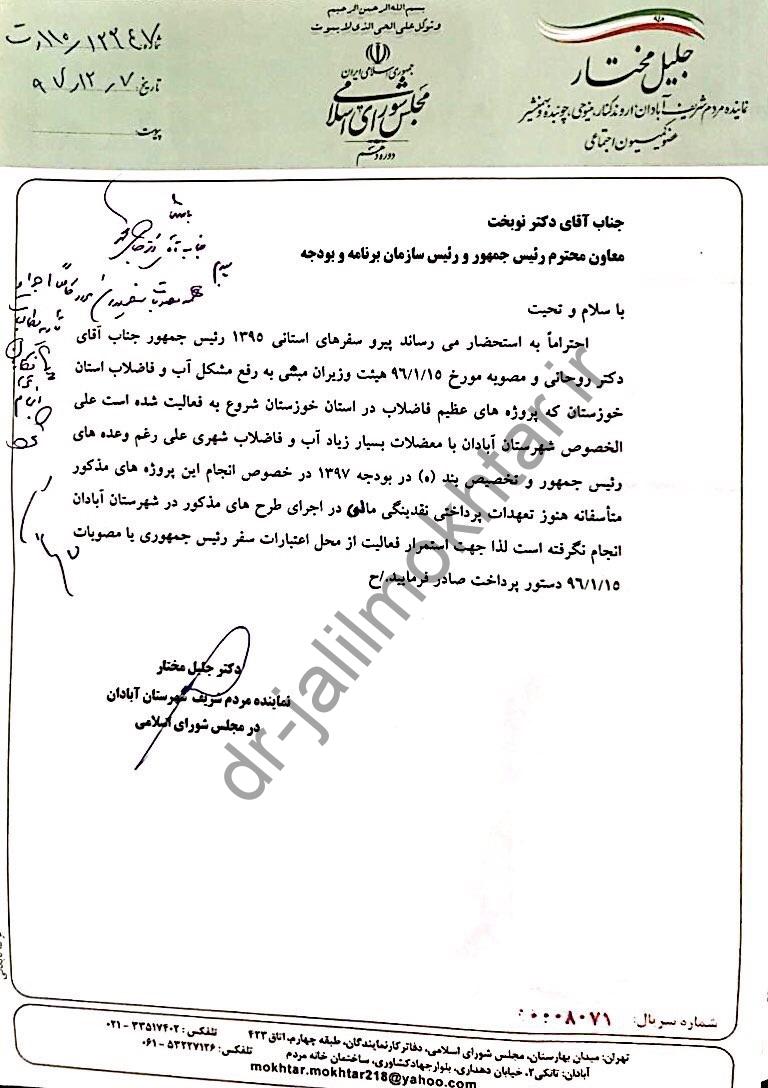 بسم الله الرحمن الرحیم
وتوکل علی الحی الذی لایموت
جمهوری اسلامی ایران
مجلس شورای اسلامی
دوره دهم
جلیل مختار
نماینده مردم شریف آبادان، اروندکنار، مینوحی، چوئبده و بهمنشیر
عضو کمیسیون اجتماعی
شماره
تاریخ: ۹۷/۱۲/۷
پیوست:
جناب آقای دکتر نوبخت
معاون محترم رئیس جمهور و رئیس سازمان برنامه و بودجه
با سلام و تحیت
احتراماً به استحضار می رساند پیرو سفرهای استانی ۱۳۹۵ رئیس جمهور جناب آقای
دکتر روحانی و مصوبه مورخ ۹۶/۱/۱۵ هیئت وزیران مبنی به رفع مشکل آب و فاضلاب استان
خوزستان که پروژه های عظیم فاضلاب در استان خوزستان شروع به فعالیت شده است علی
الخصوص شهرستان آبادان با معضلات بسیار زیاد آب و فاضلاب شهری علی رغم وعده های
رئیس جمهور و تخصیص بند (ه) در بودجه ۱۳۹۷ در خصوص انجام این پروژه های مذکور
متأسفانه هنوز تعهدات پرداختی نقدینگی مالی در اجرای طرح های مذکور در شهرستان آبادان
انجام نگرفته است لذا جهت استمرار فعالیت از محل اعتبارات سفر رئیس جمهوری یا مصوبات
۹۶/۱/۱۵ دستور پرداخت صادر فرمایید./ح
دکتر جلیل مختار
نماینده مردم شریف شهرستان آبادان
در مجلس شورای اسلامی
dr-jalilmokhtar.ir
شماره سریال: ۰۰۰۰۸۰۷۱
تهران: میدان بهارستان، مجلس شورای اسلامی، دفاتر کار نمایندگان، طبقه چهارم، اتاق ۴۲۳ تلفکس: ۳۳۵۱۷۴۰۲ - ۰۲۱
آبادان: تانکی۲، خیابان دهداری، بلوار جهاد کشاورزی، ساختمان خانه مردم تلفکس: ۵۳۲۲۷۱۲۶ - ۰۶۱
mokhtar.mokhtar218@yahoo.com